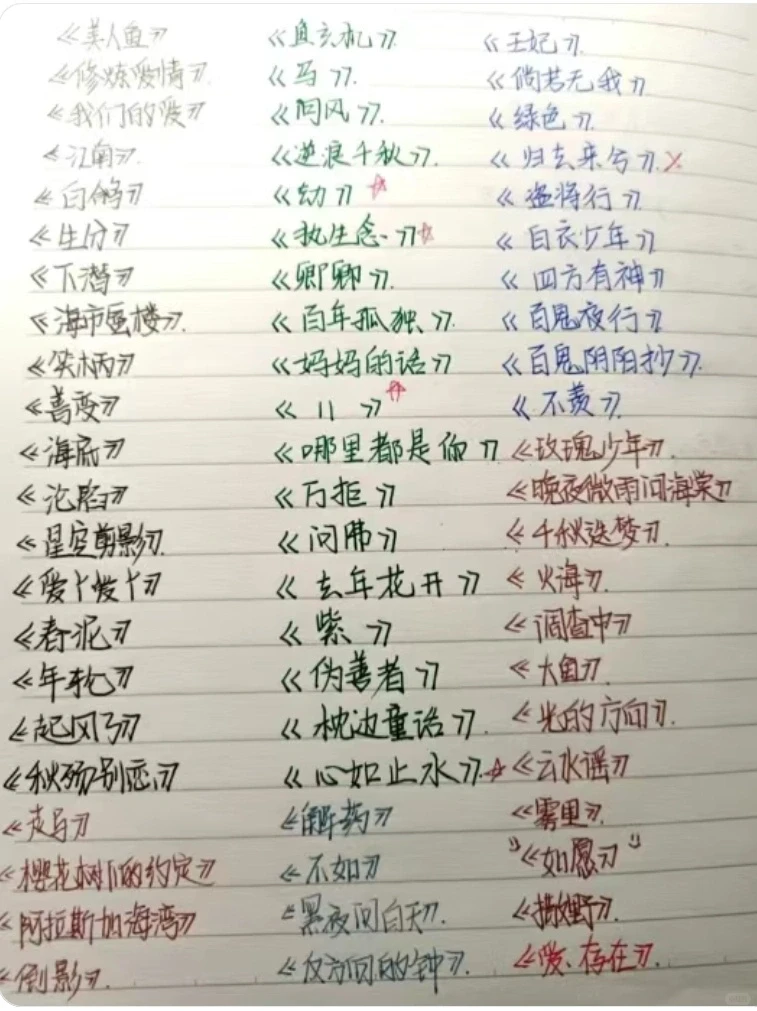 《美人鱼》
《修炼爱情》
《我们的爱》
《江南》
《白鸽》
《生分》
《下潜》
《海市蜃楼》
《笑柄》
《善变》
《海底》
《沦陷》
《星空剪影》
《爱丫爱丫》
《春泥》
《年轮》
《起风了》
《秋殇别恋》
《走马》
《樱花树下的约定》
《阿拉斯加海湾》
《倒影》
《鱼玄机》
《马》
《问风》
《逆浪千秋》
《幼》
《执生念》
《卿卿》
《百年孤独》
《妈妈的话》
《11》
《哪里都是你》
《万拒》
《问佛》
《去年花开》
《紫》
《伪善者》
《枕边童话》
《心如止水》
《解药》
《不如》
《黑夜问白天》
《反方向的钟》
《王妃》
《倘若无我》
《绿色》
《归去来兮》×
《盗将行》
《白衣少年》
《四方有神》
《百鬼夜行》
《百鬼阴阳抄》
《不羡》
《玫瑰少年》
《晚夜微雨问海棠》
《千秋迭梦》
《火海》
《调查中》
《大鱼》
《光的方向》
《云水谣》
《雾里》
"《如愿》"
《撒野》
《爱、存在》